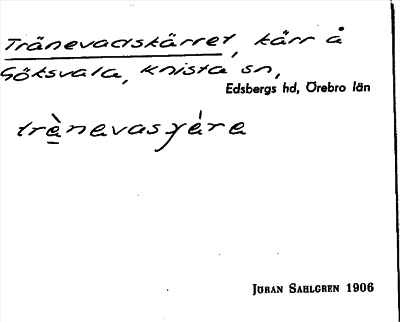 Tränevadskärret, kärr å
Göksvala, Knista sn,
Edsbergs hd, Örebro län
trènevasɣéra
JÖRAN SAHLGREN 1906